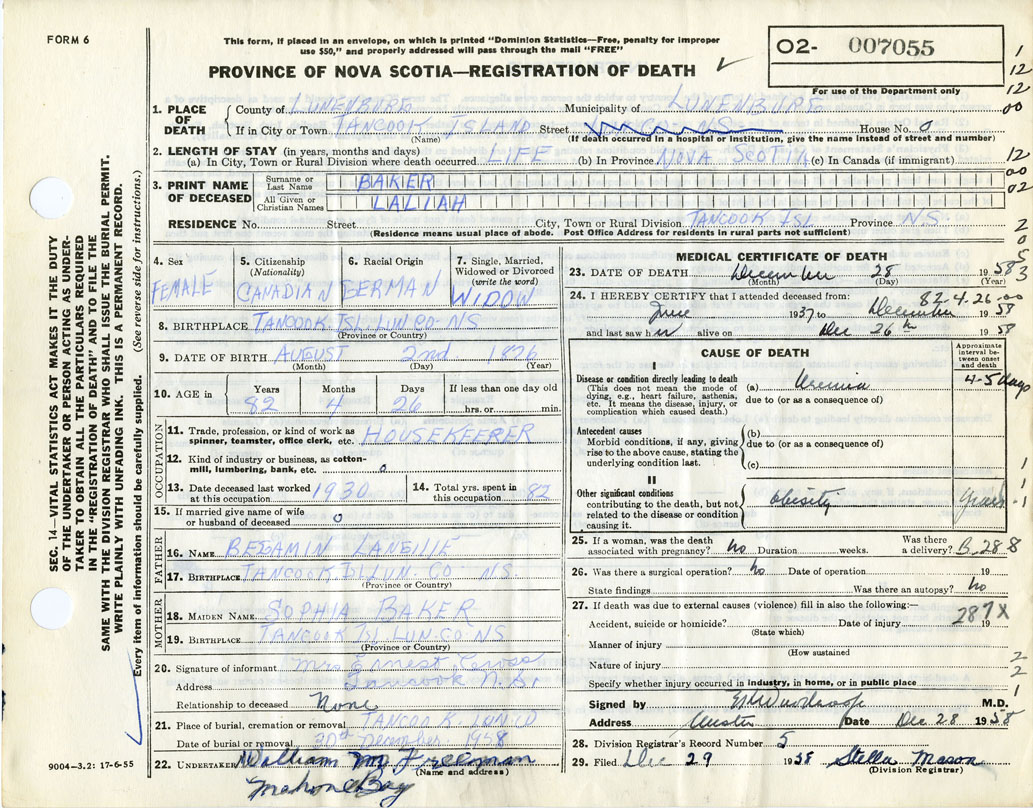 FORM 6
This form, if placed in an envelope, on which is printed "Dominion Statistics—Free, penalty for improper
use $50," and properly addressed will pass through the mail "FREE"
PROVINCE OF NOVA SCOTIA—REGISTRATION OF DEATH ✓
O2- 007055
For use of the Department only
1. PLACE OF DEATH
County of LUNENBURG Municipality of LUNENBURG
If in City or Town TANCOOK ISLAND Street House No. 0
(Name) (If death occurred in a hospital or institution, give the name instead of street and number)
2. LENGTH OF STAY (in years, months and days)
(a) In City, Town or Rural Division where death occurred LIFE (b) In Province NOVA SCOTIA (c) In Canada (if immigrant)
3. PRINT NAME OF DECEASED
Surname or Last Name BAKER
All Given or Christian Names LALIAH
RESIDENCE No. Street City, Town or Rural Division TANCOOK ISL Province NS
(Residence means usual place of abode. Post Office Address for residents in rural parts not sufficient)
4. Sex FEMALE
5. Citizenship (Nationality) CANADIAN
6. Racial Origin GERMAN
7. Single, Married, Widowed or Divorced (write the word) WIDOW
8. BIRTHPLACE TANCOOK ISL. LUN CO NS
(Province or Country)
9. DATE OF BIRTH AUGUST 2nd 1876
(Month) (Day) (Year)
10. AGE in Years 82 Months 4 Days 26 If less than one day old hrs. or min.
OCCUPATION
11. Trade, profession, or kind of work as
spinner, teamster, office clerk, etc. HOUSEKEERER
12. Kind of industry or business, as cotton-
mill, lumbering, bank, etc. 0
13. Date deceased last worked
at this occupation 1930
14. Total yrs. spent in
this occupation 82
15. If married give name of wife
or husband of deceased 0
FATHER
16. NAME
17. BIRTHPLACE TANCOOK ISL LUN. CO NS
(Province or Country)
MOTHER
18. MAIDEN NAME SOPHIA BAKER
19. BIRTHPLACE TANCOOK ISL LUN.CO NS
(Province or Country)
20. Signature of informant Mrs Ernest Cross
Address Tancook N.S.
Relationship to deceased None
21. Place of burial, cremation or removal TANCOOK LUN CO
Date of burial or removal 30th December 1958
22. UNDERTAKER William M. Freeman
(Name and address)
Mahone Bay
9004—3.2: 17-6-55
SEC. 14—VITAL STATISTICS ACT MAKES IT THE DUTY
OF THE UNDERTAKER OR PERSON ACTING AS UNDER-
TAKER TO OBTAIN ALL THE PARTICULARS REQUIRED
IN THE "REGISTRATION OF DEATH" AND TO FILE THE
SAME WITH THE DIVISION REGISTRAR WHO SHALL ISSUE THE BURIAL PERMIT.
WRITE PLAINLY WITH UNFADING INK. THIS IS A PERMANENT RECORD.
Every item of information should be carefully supplied. (See reverse side for instructions.)
MEDICAL CERTIFICATE OF DEATH
23. DATE OF DEATH December 28 1958
(Month) (Day) (Year)
82-4-26-00
24. I HEREBY CERTIFY that I attended deceased from:
June 1937 to December 1958
and last saw her alive on Dec 26th 1958
CAUSE OF DEATH
Approximate interval be-
tween onset and death
I
Disease or condition directly leading to death
(This does not mean the mode of
dying, e.g., heart failure, asthenia,
etc. It means the disease, injury, or
complication which caused death.)
(a) Uremia 4-5 days
due to (or as a consequence of)
Antecedent causes
Morbid conditions, if any, giving
rise to the above cause, stating the
underlying condition last.
(b)
due to (or as a consequence of)
(c)
II
Other significant conditions
contributing to the death, but not
related to the disease or condition
causing it.
obesity years
25. If a woman, was the death
associated with pregnancy? No Duration weeks. Was there
a delivery? B.288
26. Was there a surgical operation? No Date of operation 19
State findings Was there an autopsy? No
27. If death was due to external causes (violence) fill in also the following:—
287X
Accident, suicide or homicide? Date of injury 19
(State which)
Manner of injury
(How sustained
Nature of injury
Specify whether injury occurred in industry, in home, or in public place
Signed by M.D.
Address Chester Date Dec 28 1958
28. Division Registrar's Record Number 5
29. Filed Dec 29 1958 Stella Mason
(Division Registrar)
1
12
12
00
12
00
02
2
0
5
3
1
1
1
2
2
1